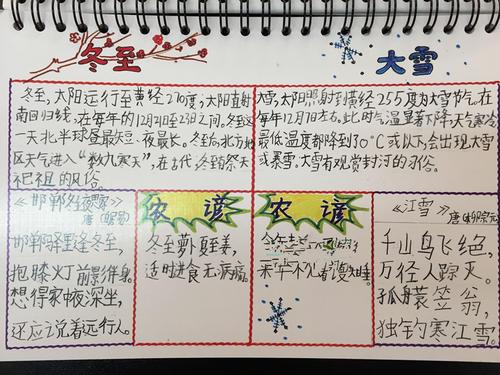 冬至
大雪
冬至,太阳运行至黄经270度,太阳直射
南回归线,在每年的12月21日至23日之间。冬至这
一天北半球昼最短、夜最长。冬至后,北方地
区天气进入“数九寒天”,在古代,冬至有祭天
祀祖的风俗。
大雪,太阳照射到黄经255度为大雪节气。在
每年12月7日左右。此时气温显著下降,天气寒冷
最低温度都降到30℃或以下,会出现大雪
或暴雪。大雪有观赏封河的习俗。
《邯郸冬至夜思家》
唐(白居易)
邯郸驿里逢冬至,
抱膝灯前影伴身。
想得家中夜深坐,
还应说着远行人。
农谚
冬至萝卜夏至姜,
适时进食无病痛。
农谚
今年
来年 馒 睡。
《江雪》
唐(柳宗元)
千山鸟飞绝,
万径人踪灭。
孤舟蓑笠翁,
独钓寒江雪。